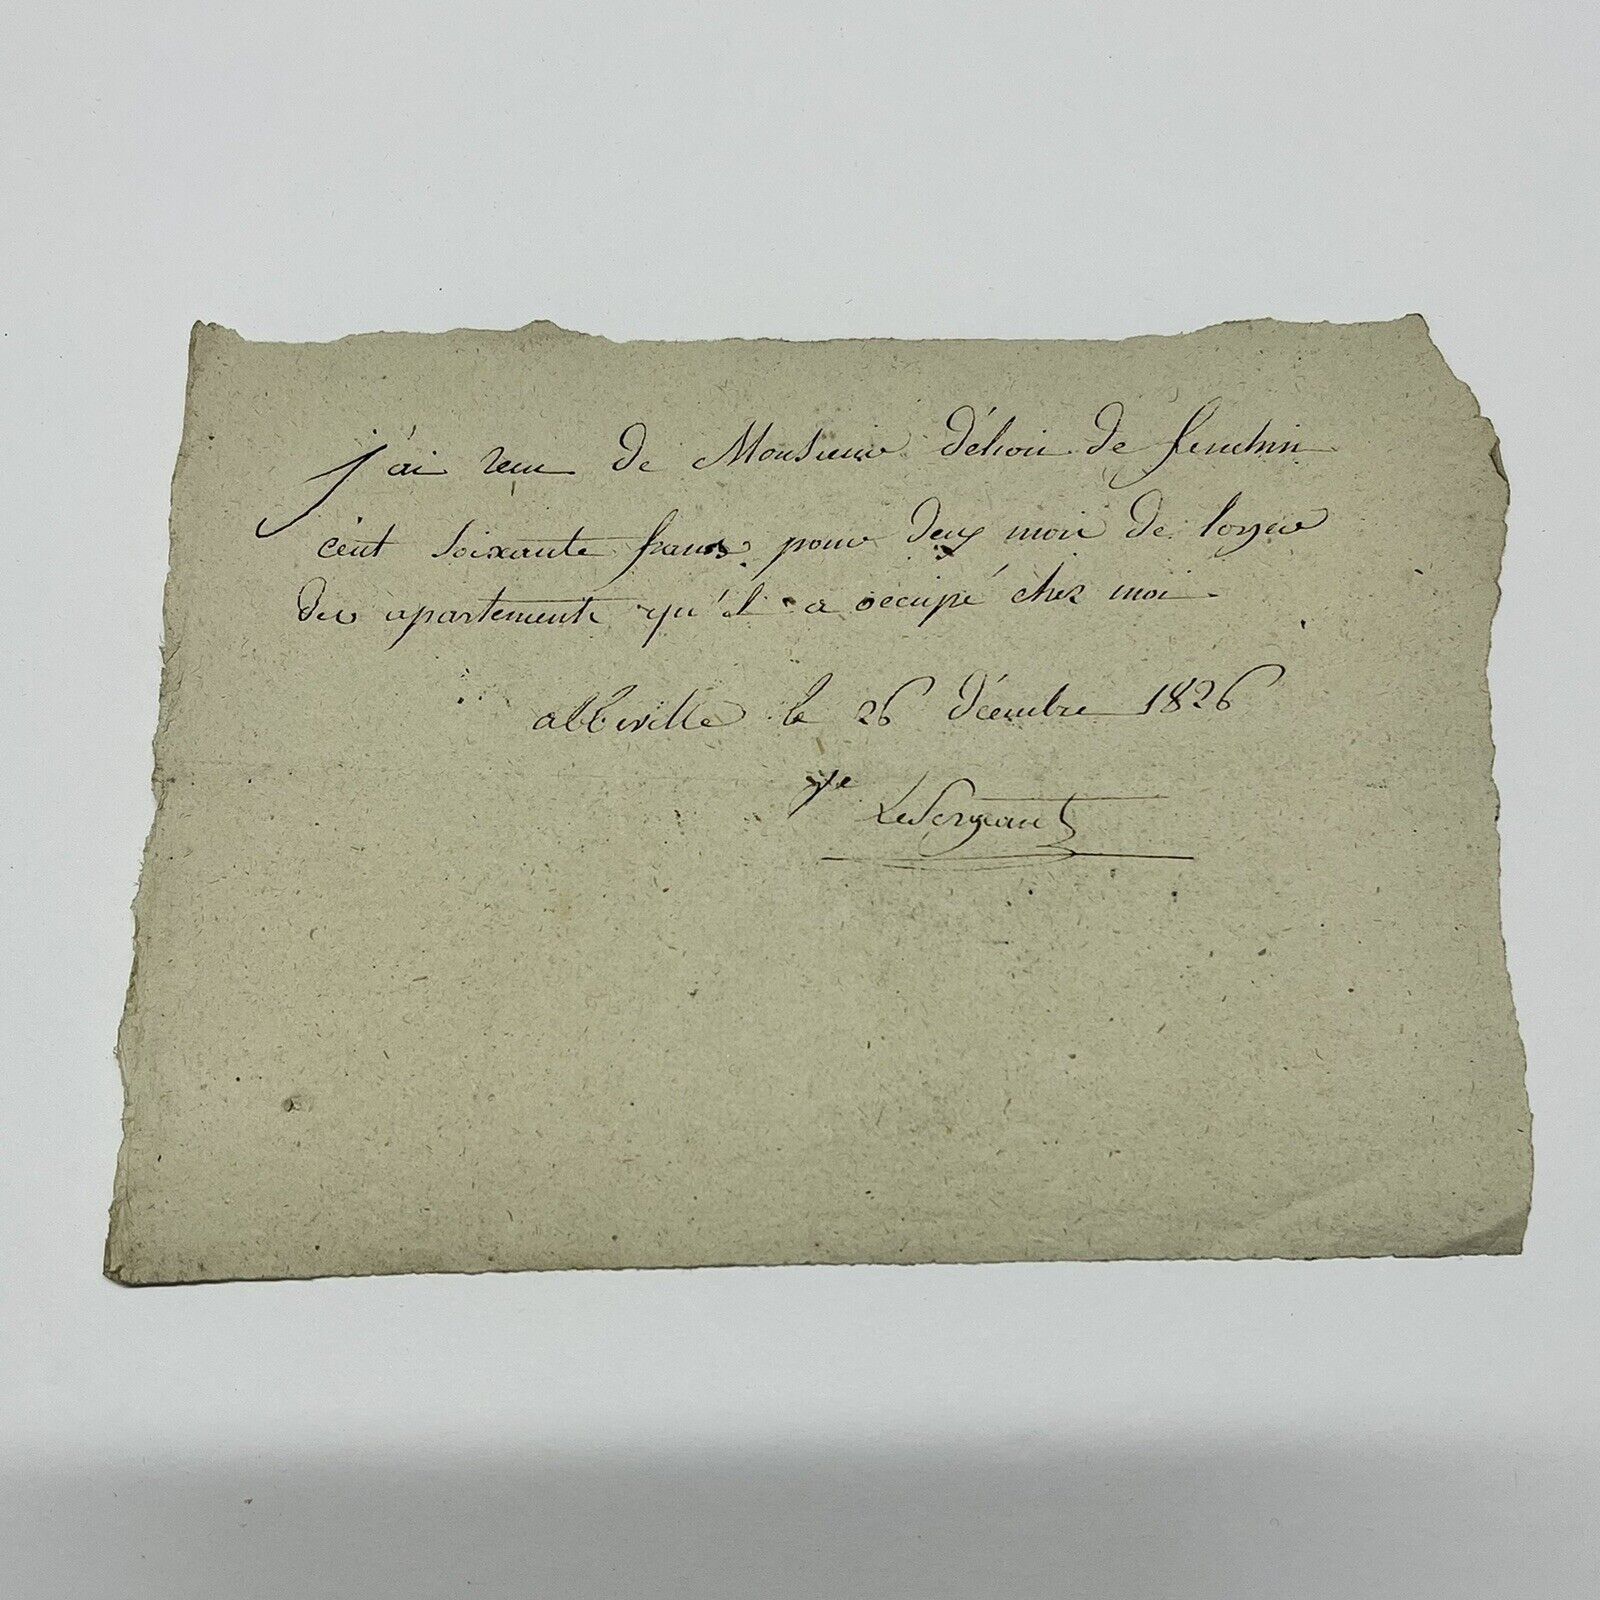 j'ai recu de Monsieur déhoir de
cent soixante francs pour deux mois de loyer
des apartements qu'il a occupé chez moi
abbeville le 26 décembre 1826
LeSergeant